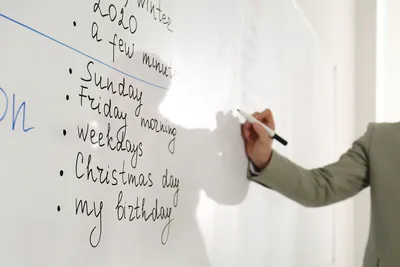 winter
2020
• a few minut
• Sunday
• Friday morning
• weekdays
• Christmas day
• my birthday
on